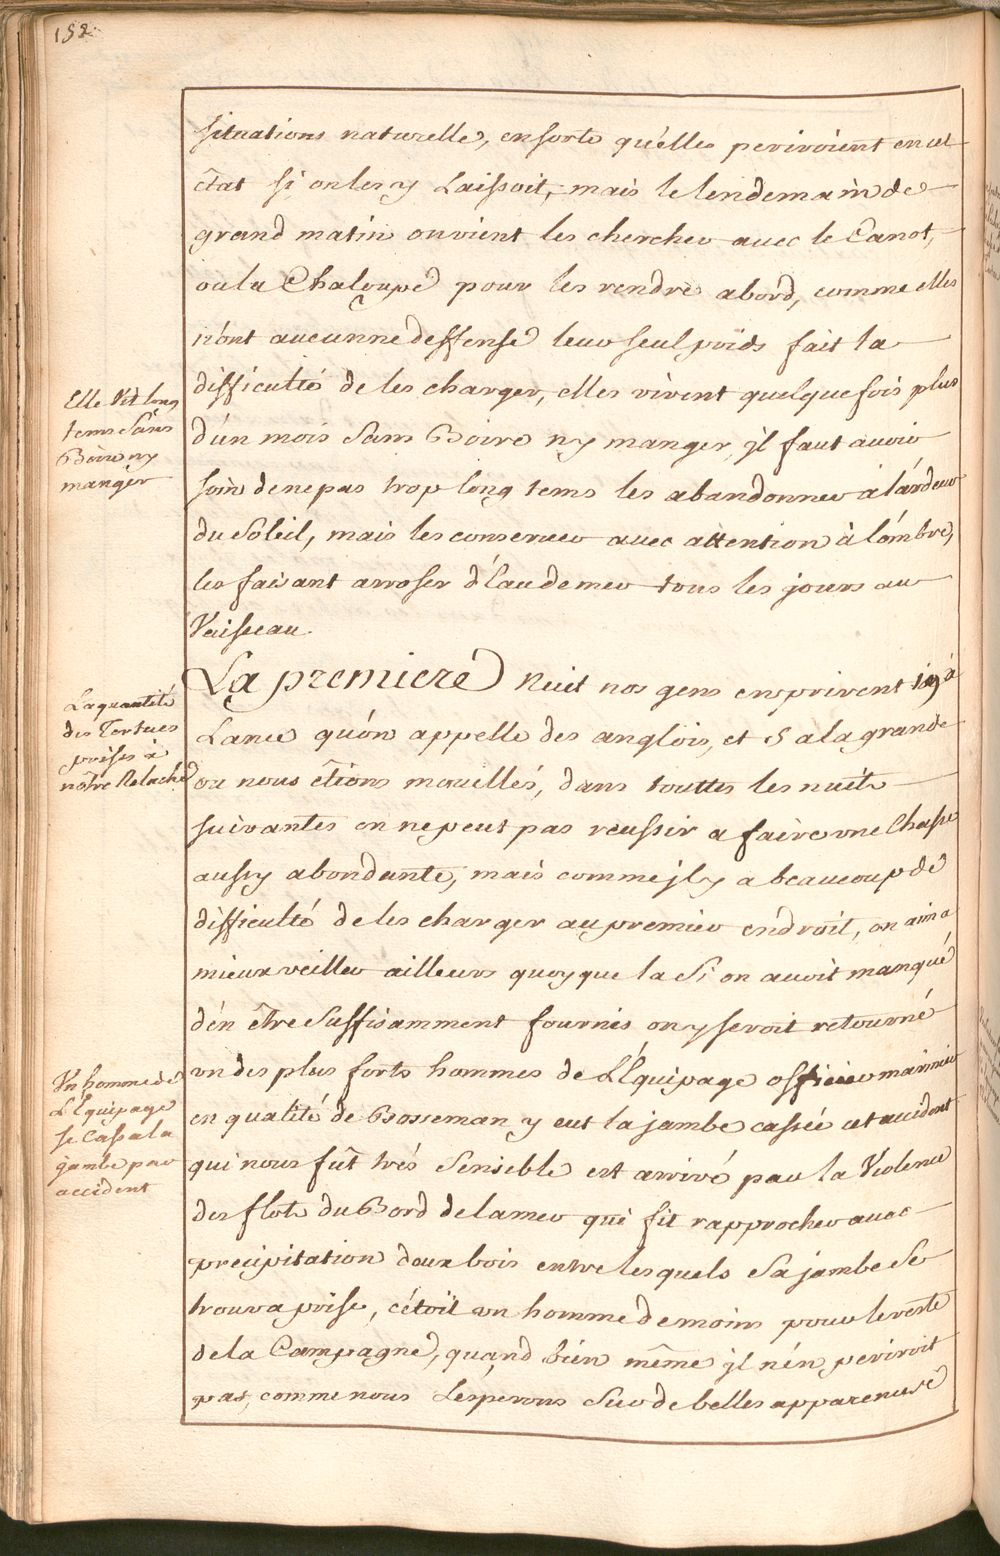 152
situations naturelle, ensorte qu'elles periroient en cet
êtat si on les y Laissoit, mais le lendemain de
grand matin on vient les chercher avec le Canot,
ou la Chaloupe pour les rendre abord, comme elles
n'ont aucunne deffense leur seul poids fait la
difficultté de les charger, elles vivent quelque fois plus
d'un mois Sans Boire ny manger, jl faut avoir
soin de ne pas trop long tems les abandonner à l'ardeur
du Soleil, mais les conserver avec attention à l'ombre,
les faisant arroser d'Eau de mer tous les jours au
Vaisseau.
Elle Vit long
tems Sans
Boire ny
manger
La premiere Nuit nos gens en prirent à
Lance qu'on appelle des anglois, et 5 a la grande
ou nous êtions mouillés, dans touttes les nuits
suivantes on ne peut pas reussir a faire une Chasse
aussy abondante, mais comme jl y a beaucoup de
difficulté de les charger au premier endroit, on aima
mieux veiller ailleurs quoy que la Si on avoit manqué
d'en être Suffisamment fournis on y seroit retourné
un des plus forts hommes de L'Equipage officier marinier
en qualité de Bosseman y eut la jambe cassée cet accident
qui nous fût très Sensible est arrivé par la Violence
des flots du Bord de la mer qui fit rapprocher avec
precipitation deux bois entre lesquels Sa jambe Se
trouva prise, c'étoit un homme de moins pour le reste
de la Campagne, quand bien même jl n'en periroit
pas, comme nous L'esperons Sur de belles apparences
La quantité
des Tortues
prises à
nôtre Relache
Un homme de
L'Equipage
se Cassa la
jambe par
accident